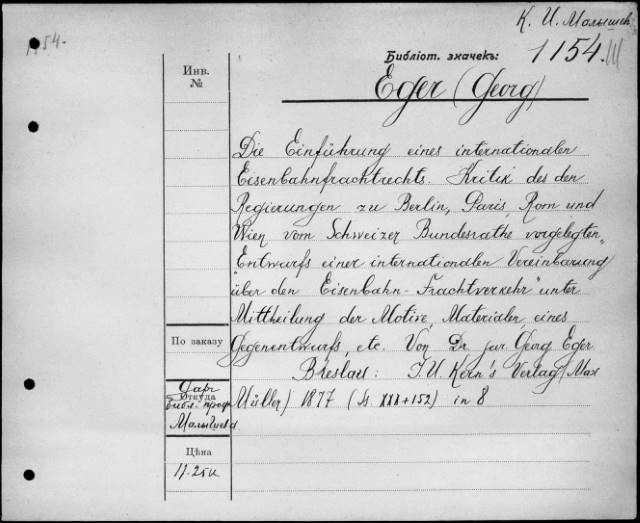 К. И. Малышев
1154.
Библіот. значекъ:
1154. III
Инв. №
Eger (Georg)
Die Einführung eines internationalen
Eisenbahnfrachtrechts. Kritik des den
Regierungen zu Berlin, Paris, Rom und
Wien vom Schweizer Bundesrathe vorgelegten
"Entwurfs einer internationalen Vereinbarung
über den Eisenbahn-Frachtverkehr" unter
Mittheilung der Motive, Materialien, eines
По заказу
Gegenentwurfs, etc. Von Dr. jur. Georg Eger.
Breslau: J. U. Kern's Verlag (Max
Даръ
Откуда
Библ. проф.
Малышева.
Müller) 1877 (St. XXX+152) in 8
Цѣна
11.25к